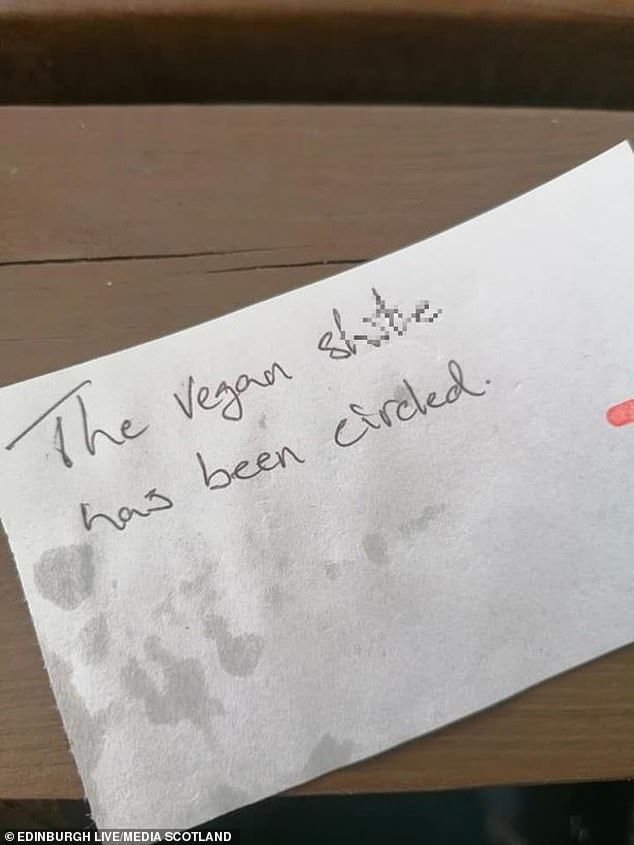 The vegan shite
has been circled.
© EDINBURGH LIVE/MEDIA SCOTLAND